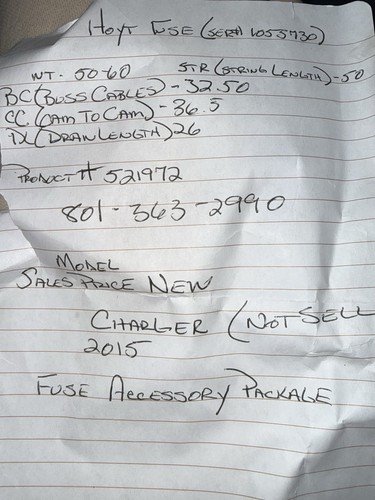 Hoyt Fuse (Ser# 1055730)
WT. 50-60 STR (String Length) - 50
BC (Buss Cables) - 32.50
CC (Cam To Cam) - 36.5
DL (Draw Length) 26
Product # 521972
801-363-2990
Model
Sales Price New
Charger (Not Sell
2015
Fuse Accessory Package